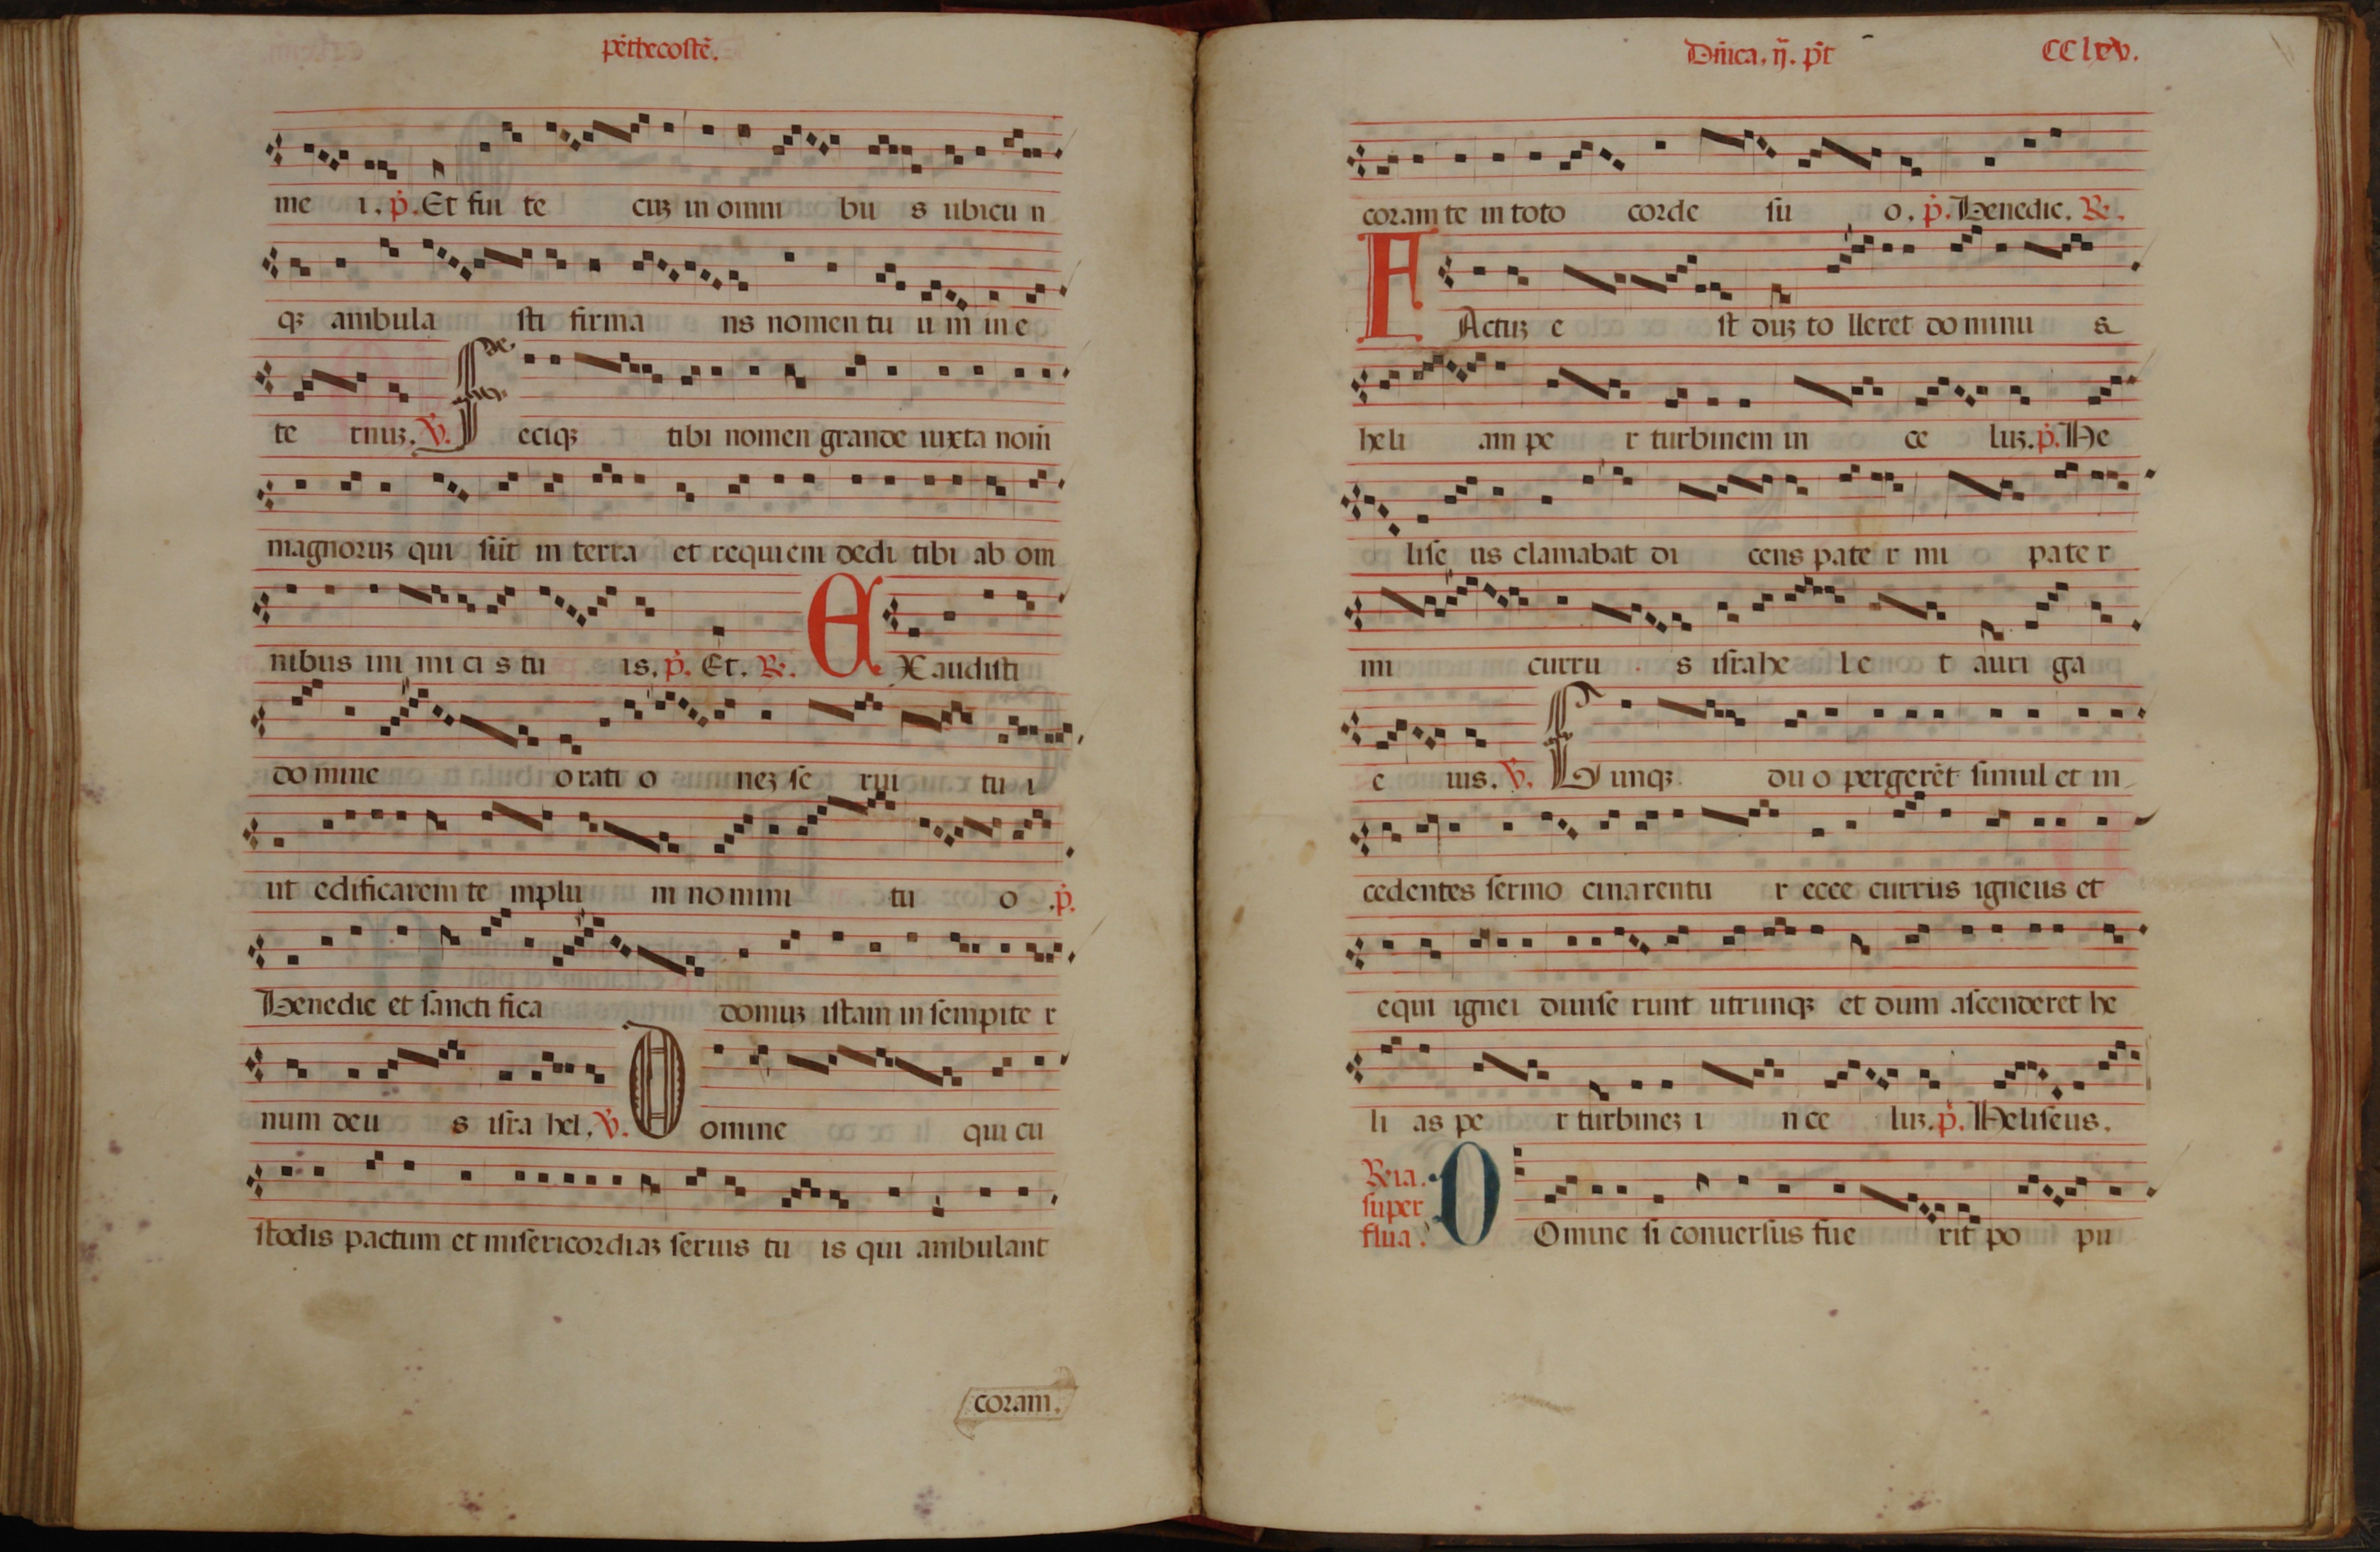 pēthecostē.
me i. p̄. Et fui te cuȝ in omni bu s ubicu n
qȝ ambula sti firma ns nomen tu u m in e
te rnuȝ. V. Feciqȝ tibi nomen grande iuxta nom̄
magnoruȝ qui sūt in terra et requiem dedi tibi ab om
nibus ini mi ci s tu is. p̄. Et. R. EXaudisti
do mine o rati o neȝ se rui tu i
ut edificarem te mplu m no mini tu o .p̄.
Benedic et sancti fica domuȝ istam in sempite r
num deu s isra hel. V. Domine qui cu
stodis pactum et misericordiaȝ seruis tu is qui ambulant
coram.
Dn̄ica. ij. p̄t CClxv.
coram te in toto corde su o. p̄. Benedic. R.
FActuȝ e st duȝ to lleret do minu s
heli am pe r turbinem in ce luȝ. p̄. He
lise us clamabat di cens pate r mi pate r
mi curru s israhe l e t auri ga
e ius. V. Cunqȝ du o pergerēt simul et in
cedentes sermo cinarentu r ecce currus igneus et
equi ignei diuise runt utrunqȝ et dum ascenderet he
li as pe r turbineȝ i n ce luȝ. p̄. Heliseus.
R. ia. super flua. DOmine si conuersus fue rit po pu